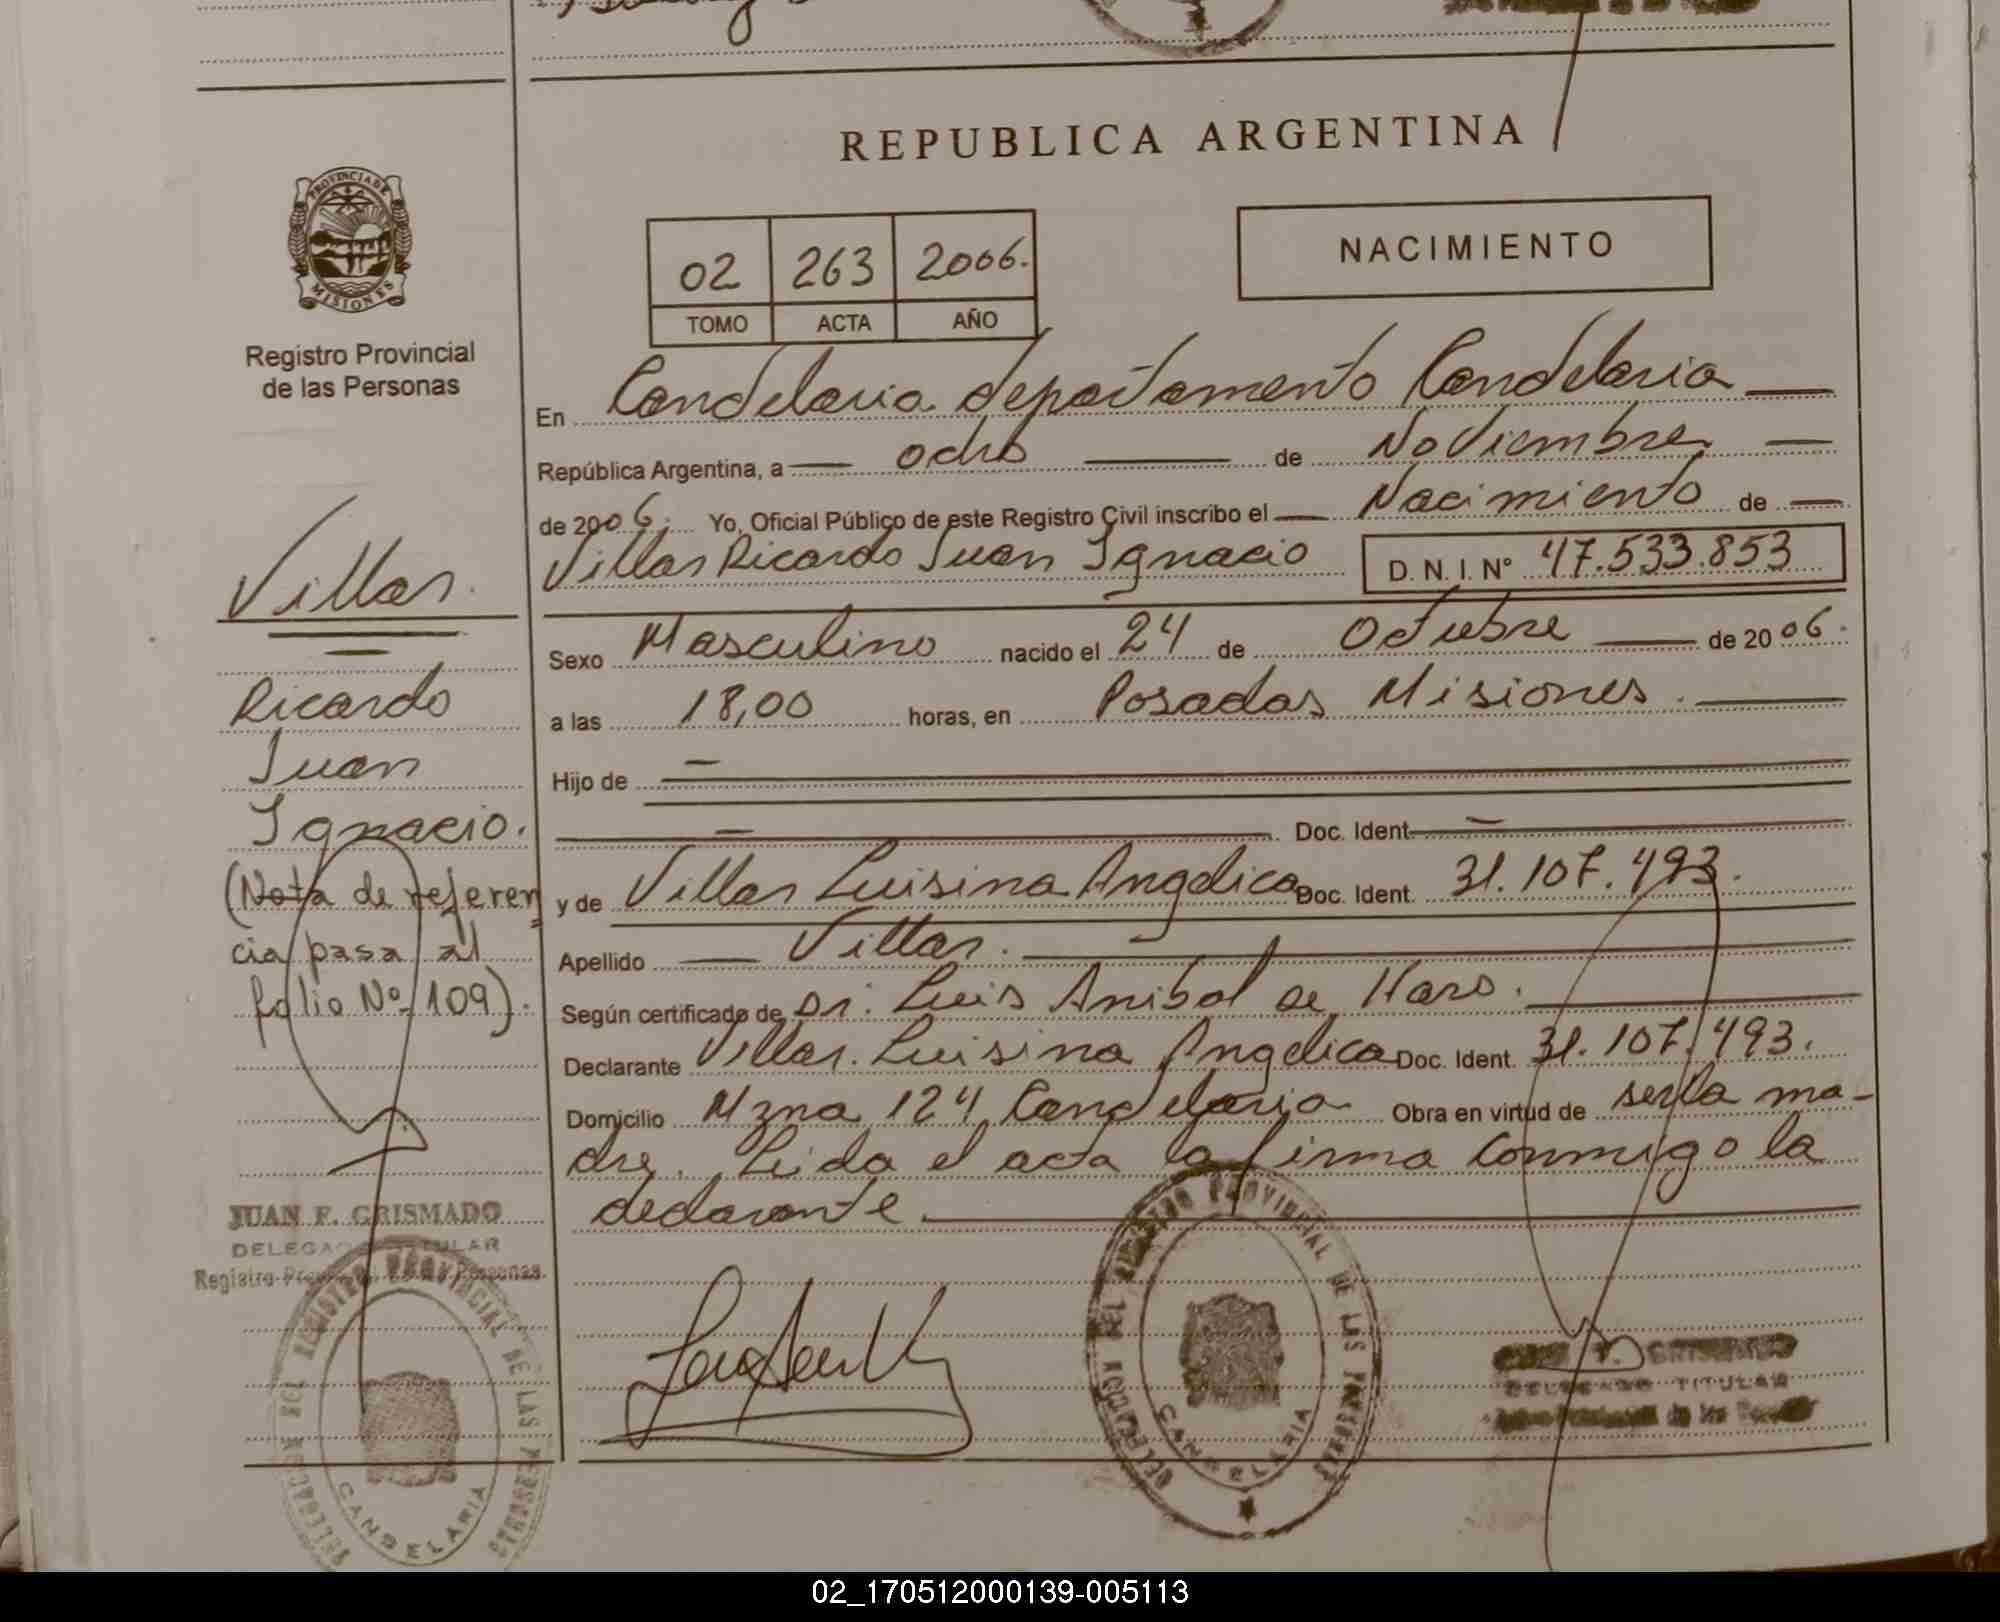 REPUBLICA ARGENTINA
PROVINCIA DE
MISIONES
Registro Provincial
de las Personas
02 263 2006.
TOMO ACTA AÑO
NACIMIENTO
En Candelaria departamento Candelaria
República Argentina, a ocho de Noviembre
de 2006. Yo, Oficial Público de este Registro Civil inscribo el Nacimiento de
Villar Ricardo Juan Ignacio D. N. I. N° 47.533.853
Sexo Masculino nacido el 24 de Octubre de 2006.
a las 18,00 horas, en Posadas Misiones.
Hijo de
Doc. Ident.
y de Villar Luisina Angelica Doc. Ident. 31.107.493.
Apellido Villar.
Según certificado de Dr. Luis Anibal de Haro.
Declarante Villar Luisina Angelica Doc. Ident. 31.107.493.
Domicilio Mzna 124 Candelaria Obra en virtud de ser la ma-
dre. Leida el acta la firma conmigo la
declarante.
Villar.
Ricardo
Juan
Ignacio.
(Nota de referen
cia pasa al
folio Nº 109).
JUAN F. GRISMADO
DELEGADO TITULAR
Registro Provincial de las Personas
DELEGACION DEL REGISTRO PROVINCIAL DE LAS PERSONAS
CANDELARIA
DELEGACION DEL REGISTRO PROVINCIAL DE LAS PERSONAS
CANDELARIA
GRISMADO
DELEGADO TITULAR
02_170512000139-005113